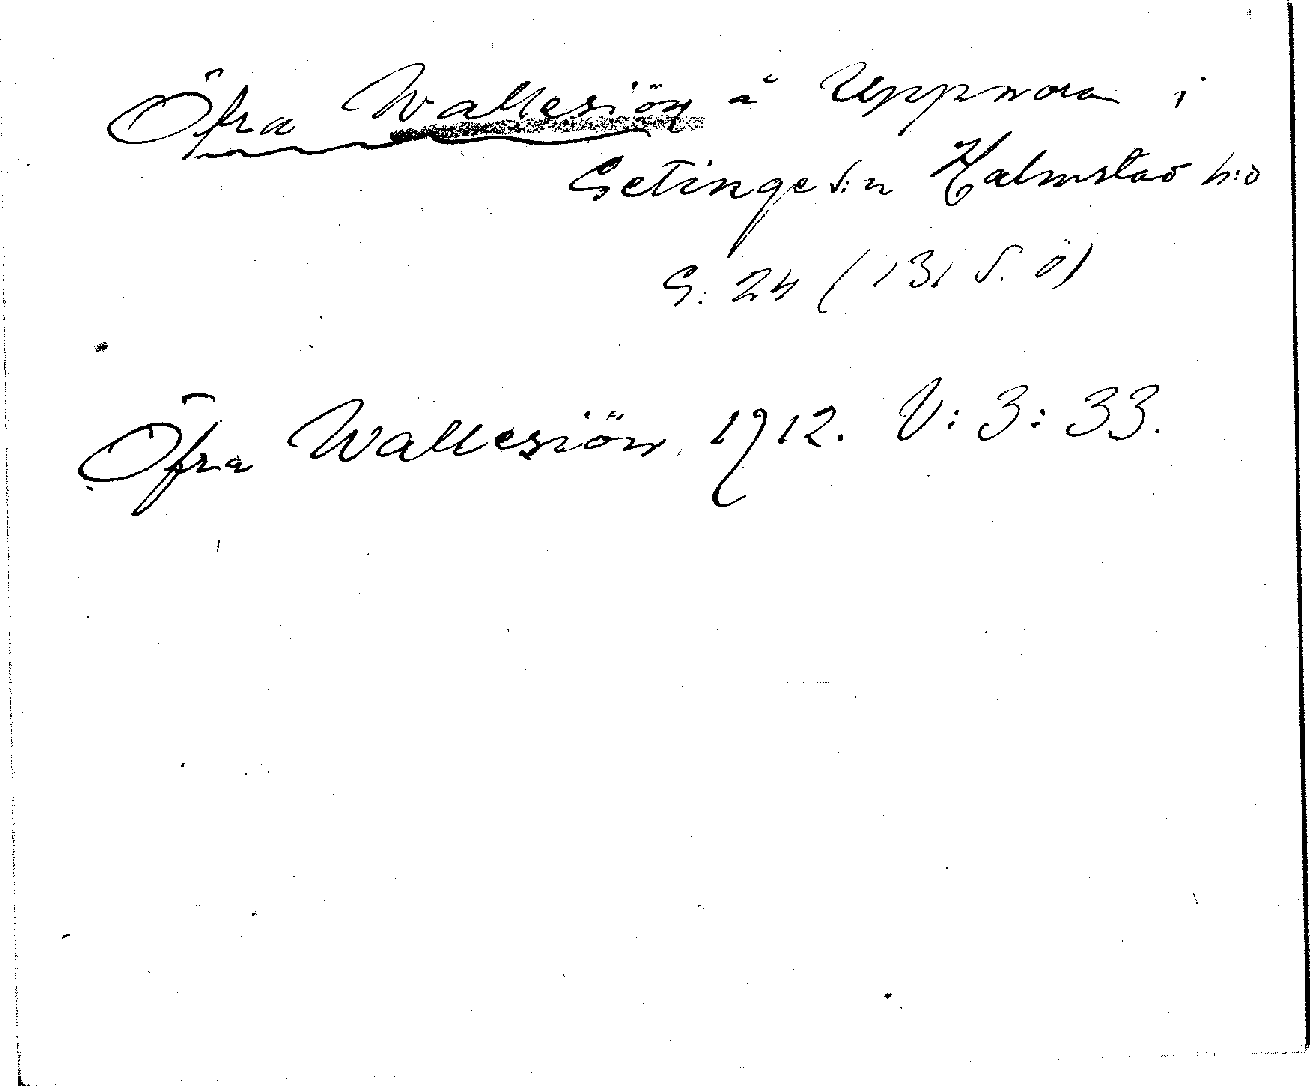 Öfra Wallesiön å Uppnora i
Getinge s:n Halmstad h:d
G: 24 (131 S. Ö)
Öfra Wallesiön 1712. V: 3: 33.